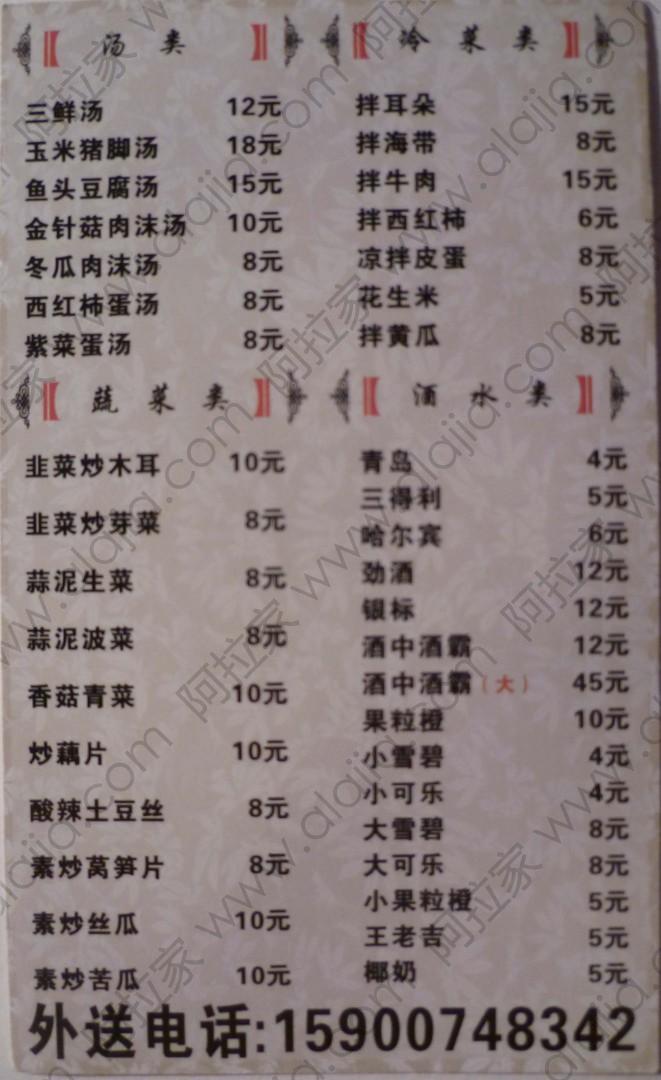 汤类
三鲜汤 12元
玉米猪脚汤 18元
鱼头豆腐汤 15元
金针菇肉沫汤 10元
冬瓜肉沫汤 8元
西红柿蛋汤 8元
紫菜蛋汤 8元
冷菜类
拌耳朵 15元
拌海带 8元
拌牛肉 15元
拌西红柿 6元
凉拌皮蛋 8元
花生米 5元
拌黄瓜 8元
蔬菜类
韭菜炒木耳 10元
韭菜炒芽菜 8元
蒜泥生菜 8元
蒜泥波菜 8元
香菇青菜 10元
炒藕片 10元
酸辣土豆丝 8元
素炒莴笋片 8元
素炒丝瓜 10元
素炒苦瓜 10元
酒水类
青岛 4元
三得利 5元
哈尔宾 6元
劲酒 12元
银标 12元
酒中酒霸 12元
酒中酒霸（大） 45元
果粒橙 10元
小雪碧 4元
小可乐 4元
大雪碧 8元
大可乐 8元
小果粒橙 5元
王老吉 5元
椰奶 5元
外送电话:15900748342
阿拉家 www.alajia.com